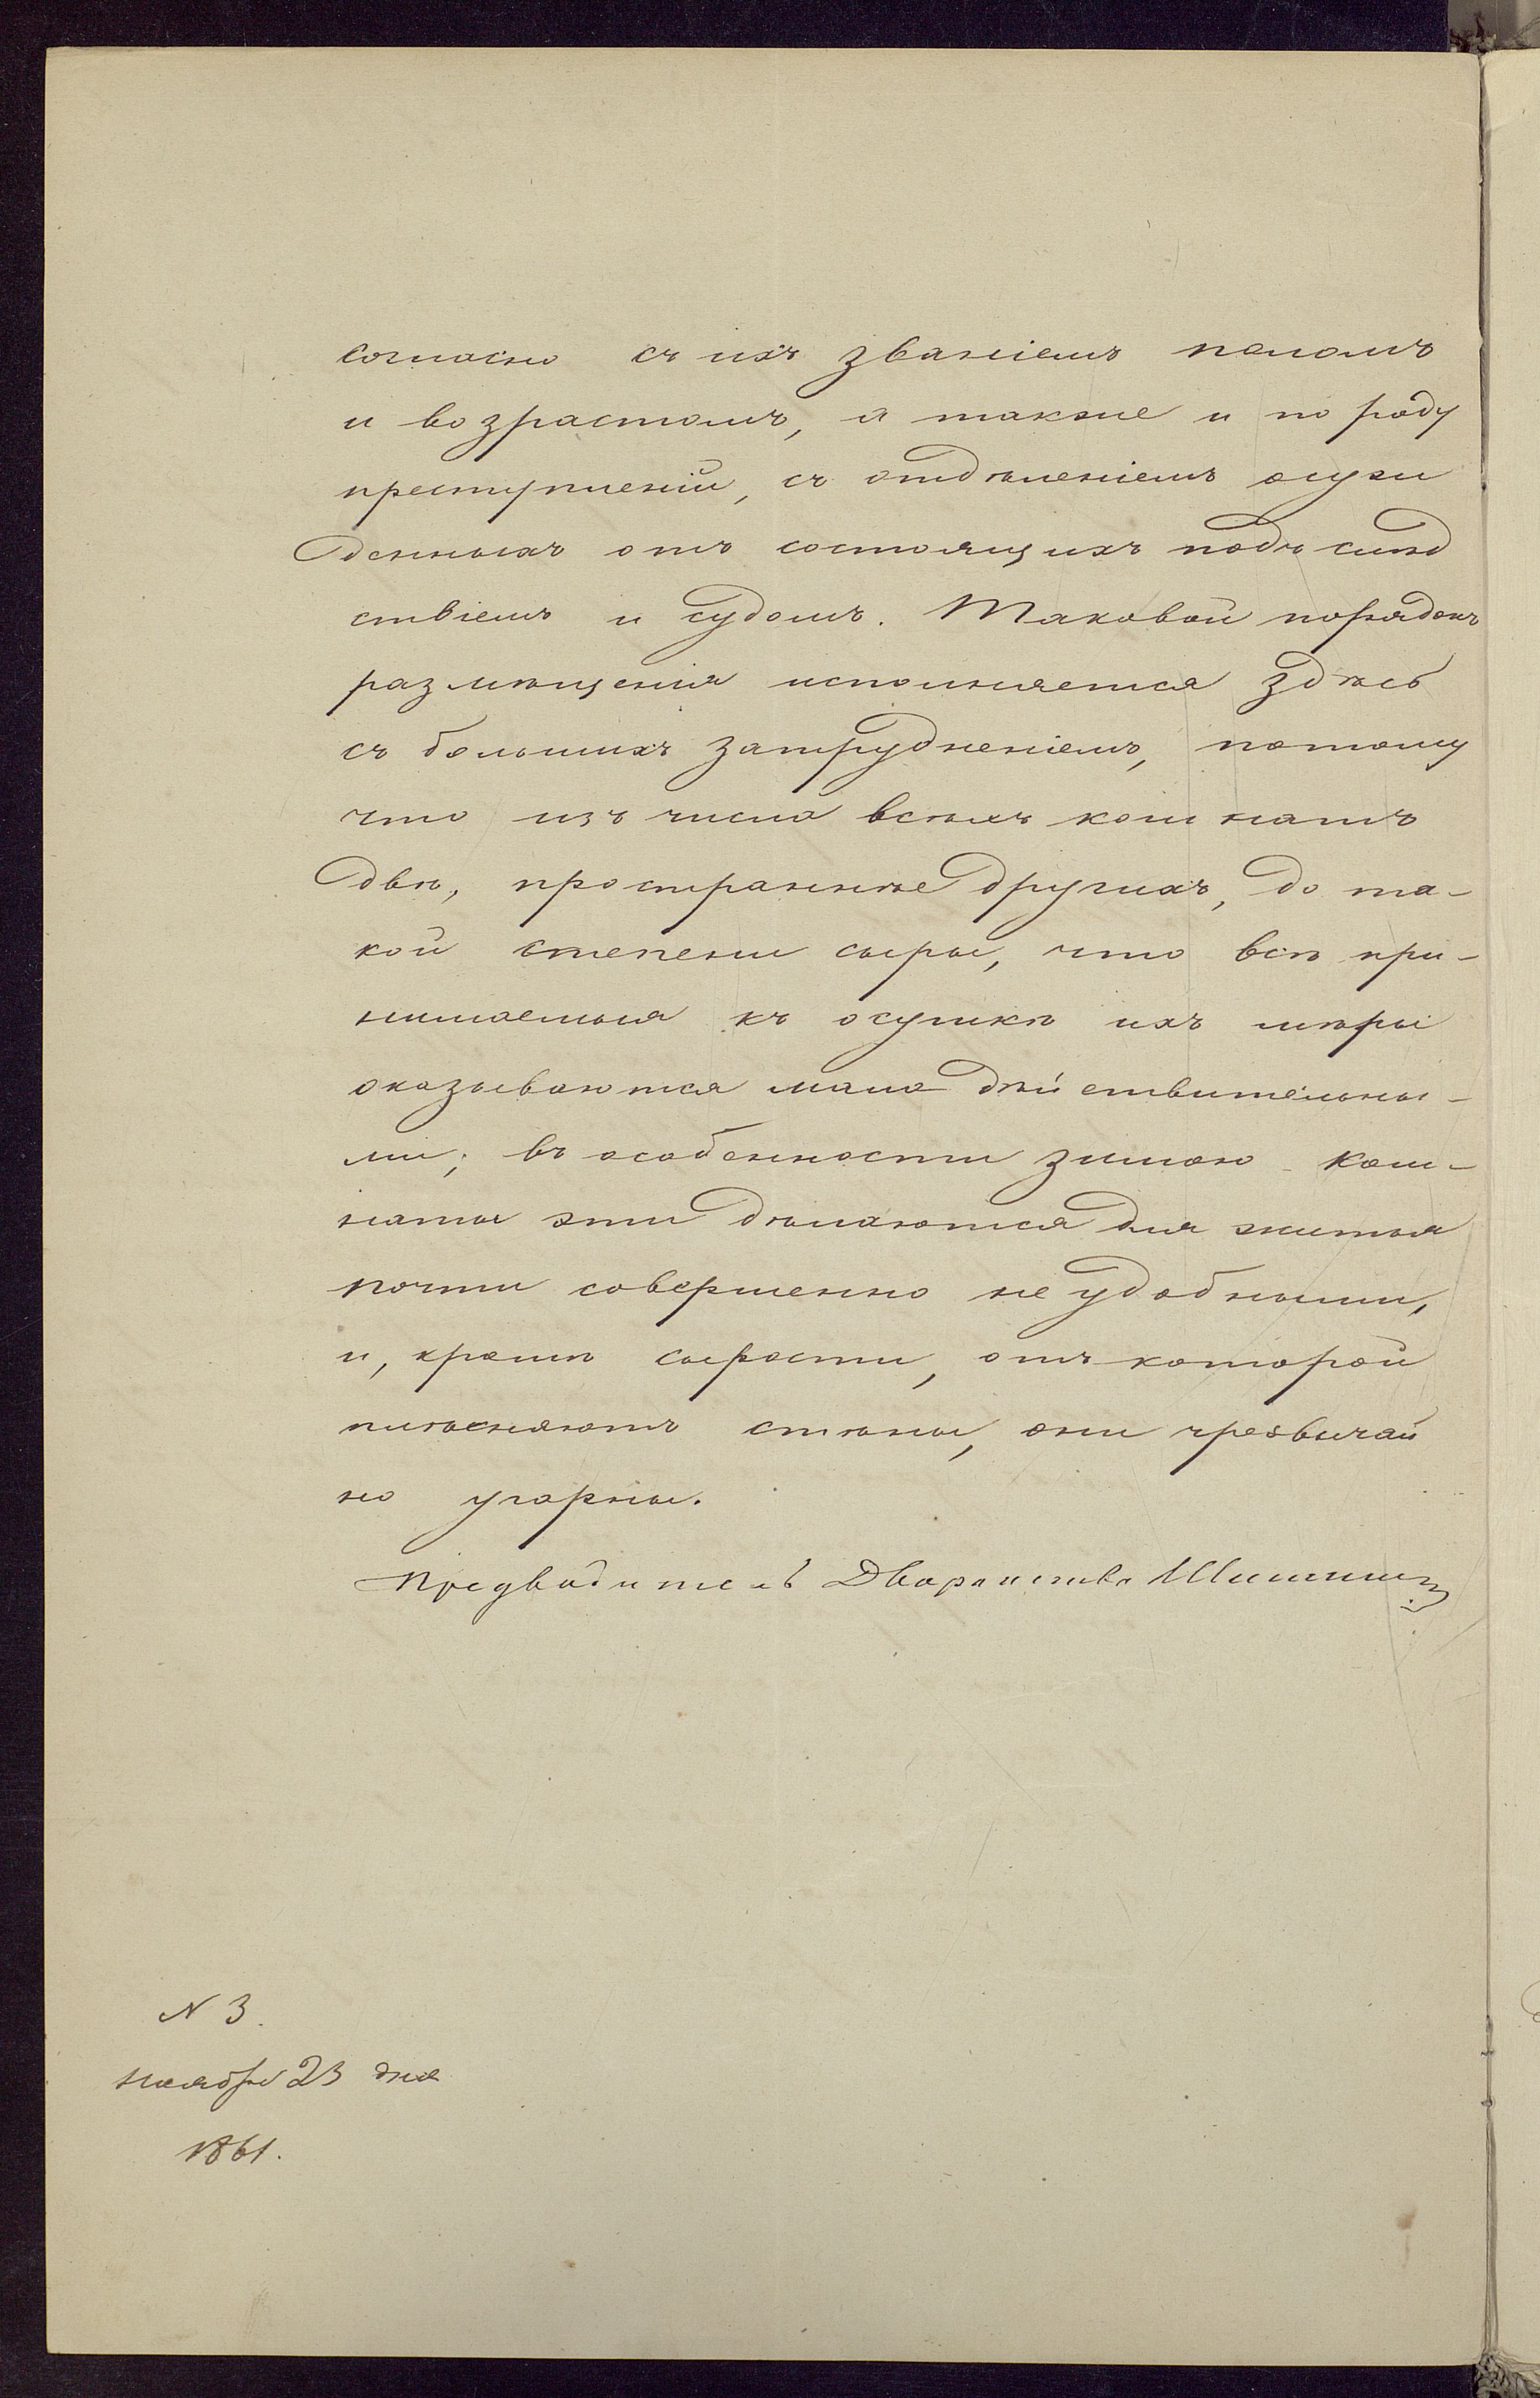 согласно съ ихъ званіемъ поломъ
и возрастомъ, а также и по роду
преступленій, съ отдѣленіемъ осуж
денныхъ отъ состоящихъ подъ слѣд
ствіемъ и судомъ. Таковой порядокъ
размѣщенія исполняется здѣсь
съ большихъ затрудненіемъ, потому
что изъ числа всѣхъ комнатъ
двѣ, пространнѣе другихъ, до та-
кой степени сыры, что всѣ при-
нимаемыя къ осушкѣ ихъ мѣры
оказываются мало дѣйствительны-
ми; въ особенности зимою ком-
наты эти дѣлаются для житья
почти совершенно не удобными,
и, кромѣ сырости, отъ которой
плѣснѣютъ стѣны, они чрезвычай
но угарны.
Предводитель Дворянства Шишкинъ
N 3.
ноября 23 дня
1861.